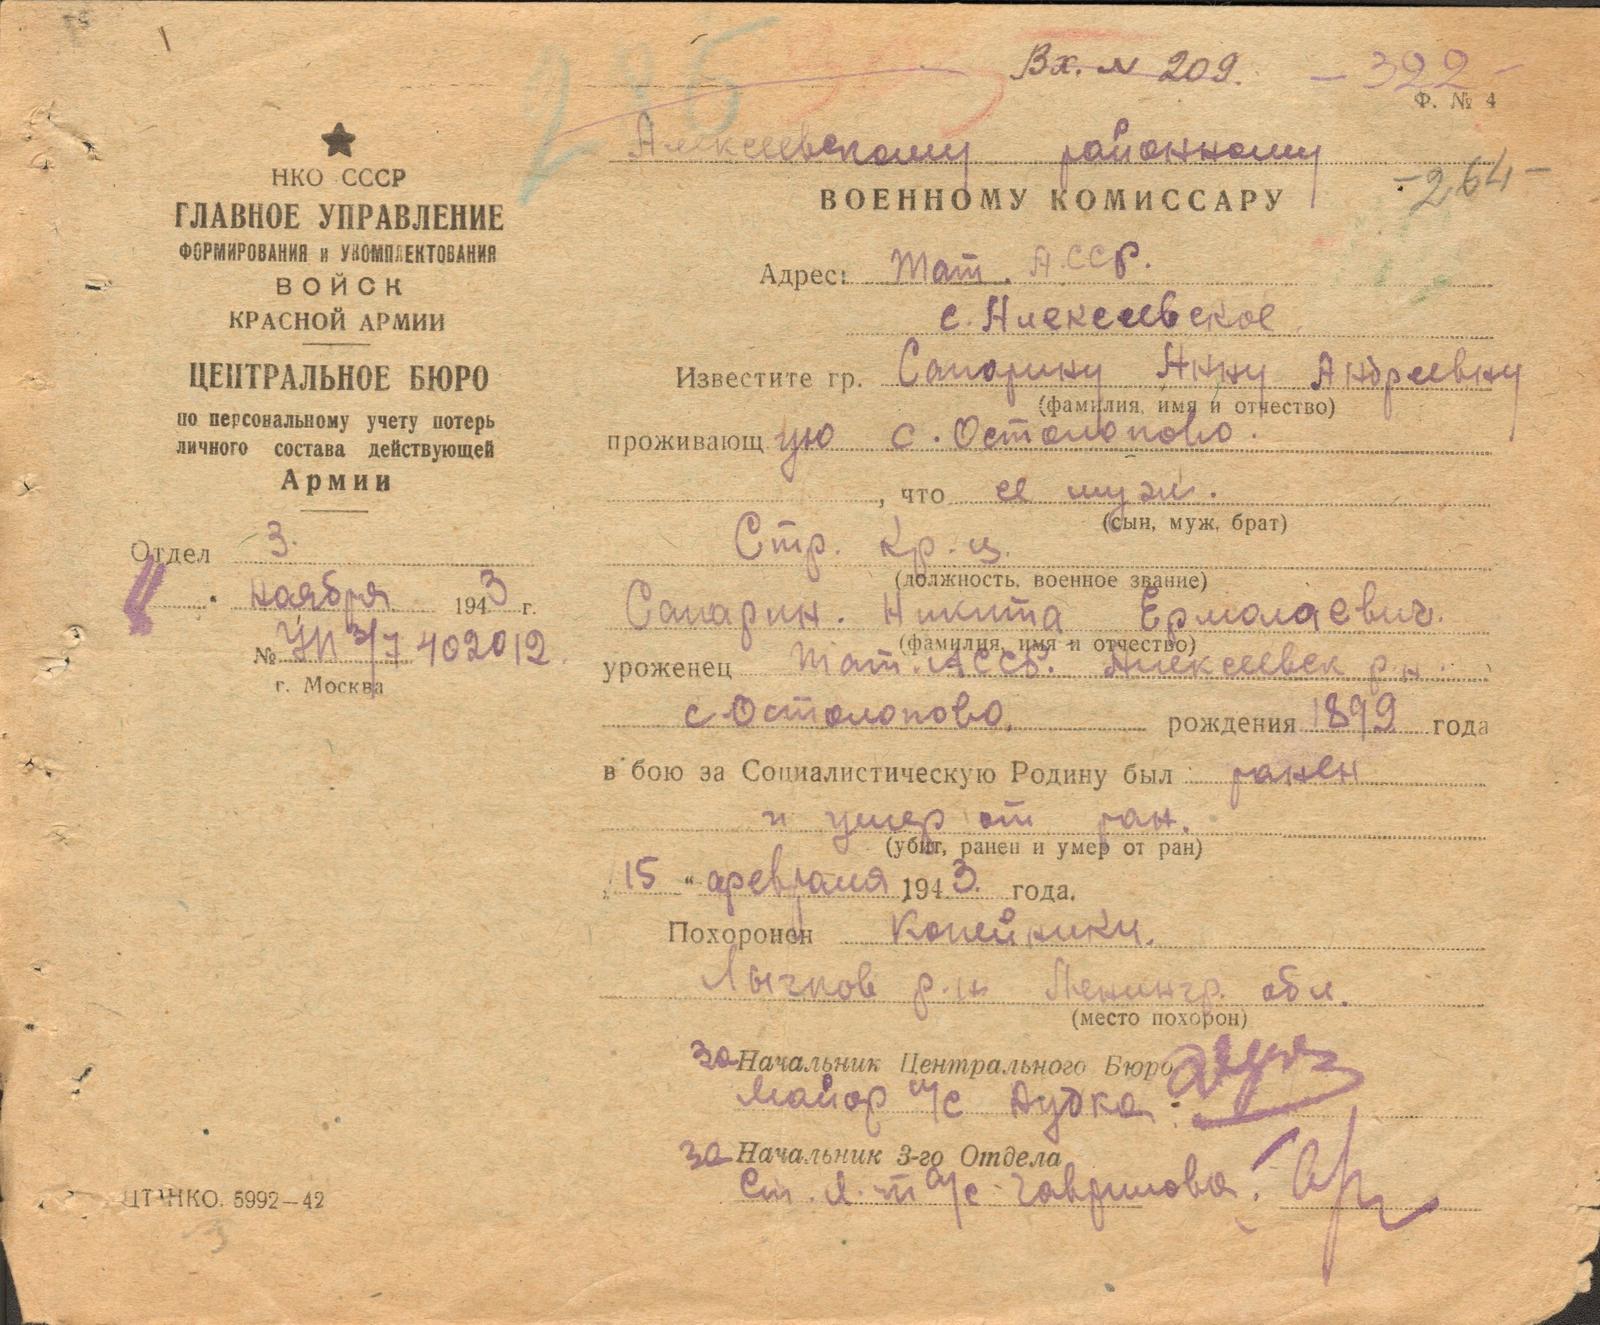 Вх. № 209.
- 322 -
Ф. № 4
286
Алексеевскому районному
ВОЕННОМУ КОМИССАРУ
- 264 -
★
НКО СССР
ГЛАВНОЕ УПРАВЛЕНИЕ
ФОРМИРОВАНИЯ и УКОМПЛЕКТОВАНИЯ
ВОЙСК
КРАСНОЙ АРМИИ
ЦЕНТРАЛЬНОЕ БЮРО
по персональному учету потерь
личного состава действующей
Армии
Отдел 3.
" ноября 1943 г.
№ УП 3/7 402012.
г. Москва
Адрес: Тат. АССР.
с. Алексеевское
Известите гр. Сапарину Анну Андреевну
(фамилия, имя и отчество)
проживающ ую с. Остолопово.
, что ее муж.
(сын, муж, брат)
Стр. кр-ц.
(должность, военное звание)
Сапарин. Никита Ермолаевич.
(фамилия, имя и отчество)
уроженец Тат. АССР. Алексеевск р-н
с Остолопово. рождения 1899 года
в бою за Социалистическую Родину был ранен
и умер от ран.
(убит, ранен и умер от ран)
„15 “ февраля 1943. года.
Похоронен Копейники.
Лычков р-н Ленингр. обл.
(место похорон)
за Начальник Центрального Бюро
майор а/с Дудка.
за Начальник 3-го Отдела
Ст. л-т а/с Гаврилова.
ЦТ НКО. 5992—42